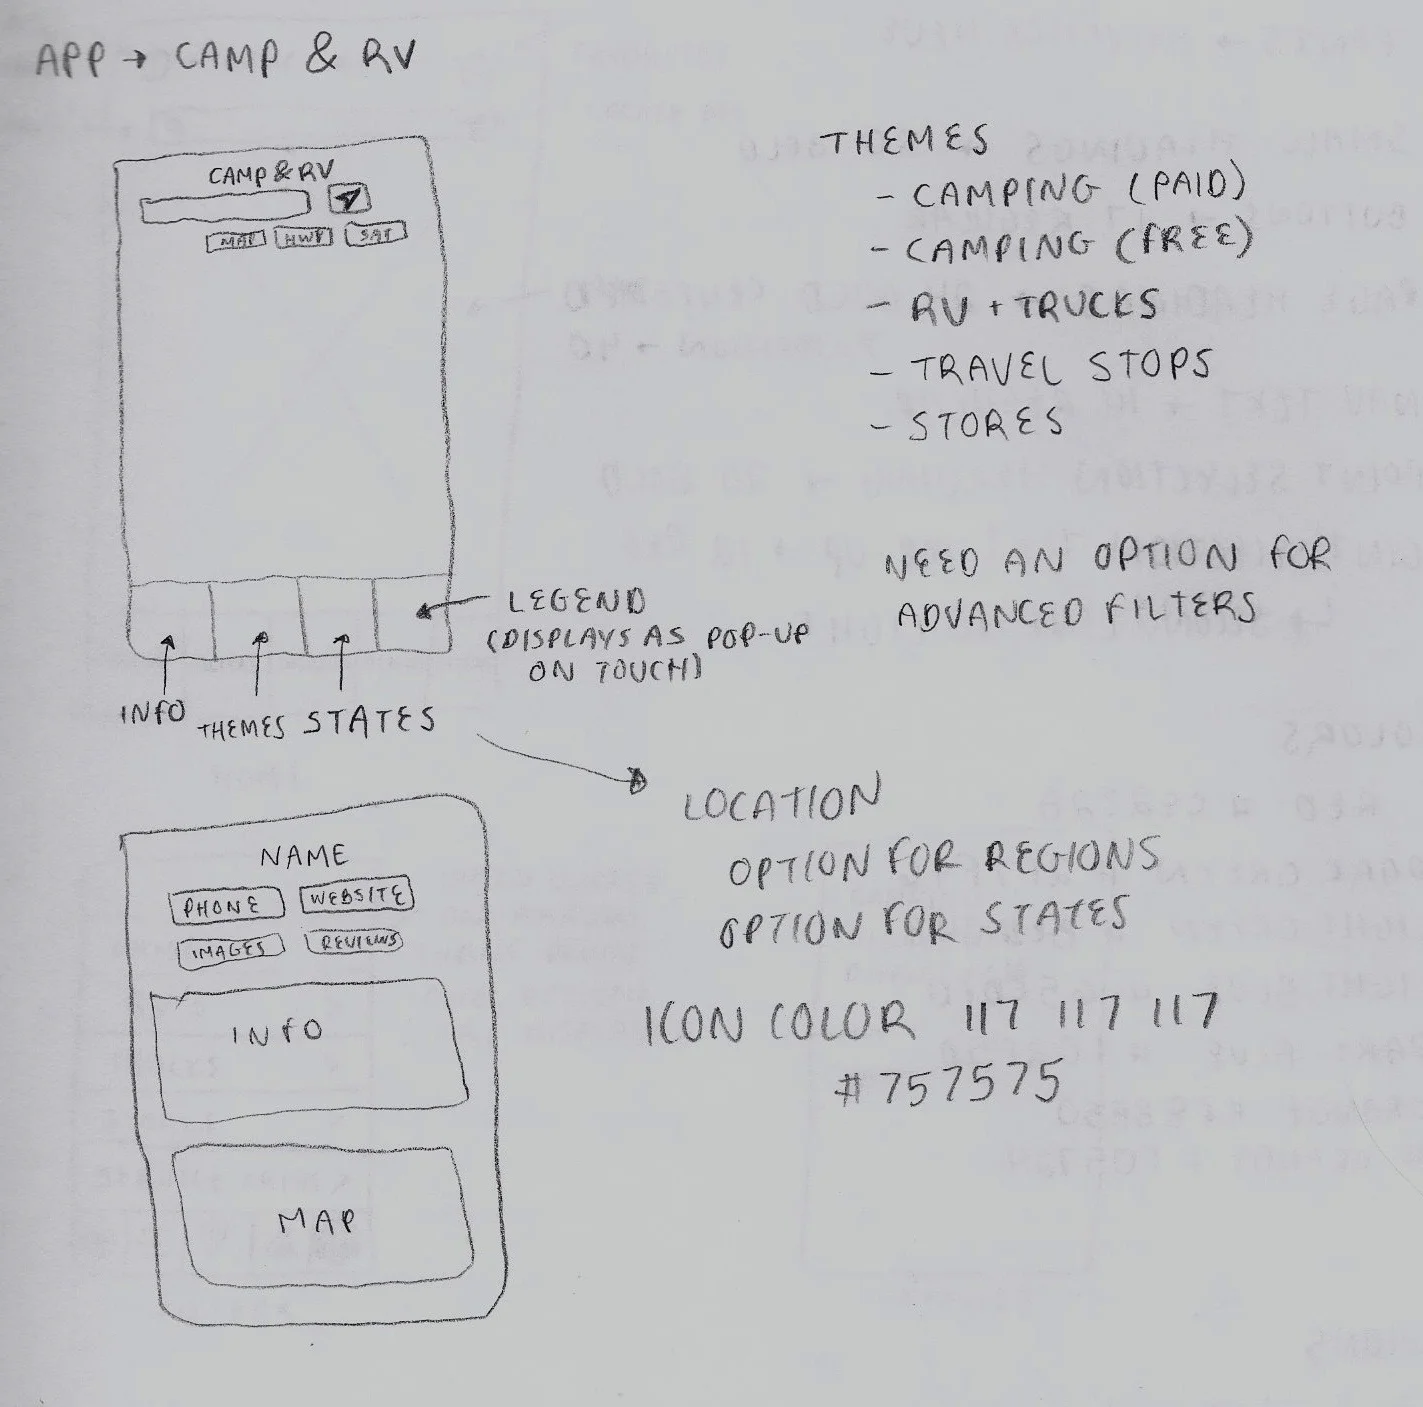 APP → CAMP & RV
CAMP & RV
MAP HWY SAT
INFO
THEMES
STATES
LEGEND
(DISPLAYS AS POP-UP
ON TOUCH)
THEMES
- CAMPING (PAID)
- CAMPING (FREE)
- RV + TRUCKS
- TRAVEL STOPS
- STORES
NEED AN OPTION FOR
ADVANCED FILTERS
LOCATION
OPTION FOR REGIONS
OPTION FOR STATES
ICON COLOR 117 117 117
#757575
NAME
PHONE WEBSITE
IMAGES REVIEWS
INFO
MAP